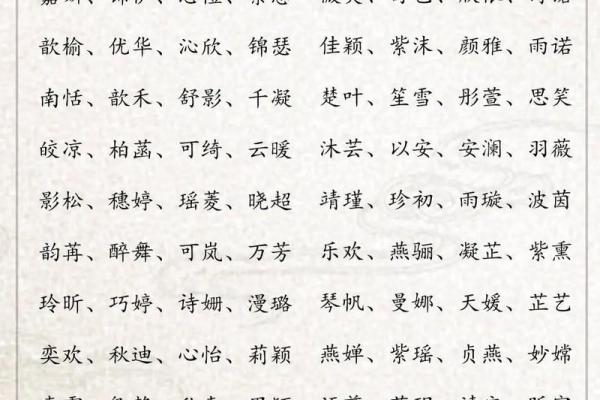 歆榆、优华、沁欣、锦瑟 佳颖、紫沫、颜雅、雨诺
南恬、歆禾、舒影、千凝 楚叶、笙雪、彤萱、思笑
皎凉、柏菡、可绮、云暖 沐芸、以安、安澜、羽薇
影松、穗婷、瑶菱、晓超 靖瑾、珍初、雨璇、波茵
韵苒、醉舞、可岚、万芳 乐欢、燕骊、凝芷、紫熏
玲昕、巧婷、诗姗、漫璐 琴帆、曼娜、天媛、芷艺
奕欢、秋迪、心怡、莉颖 燕婵、紫瑶、贞燕、妙嫦